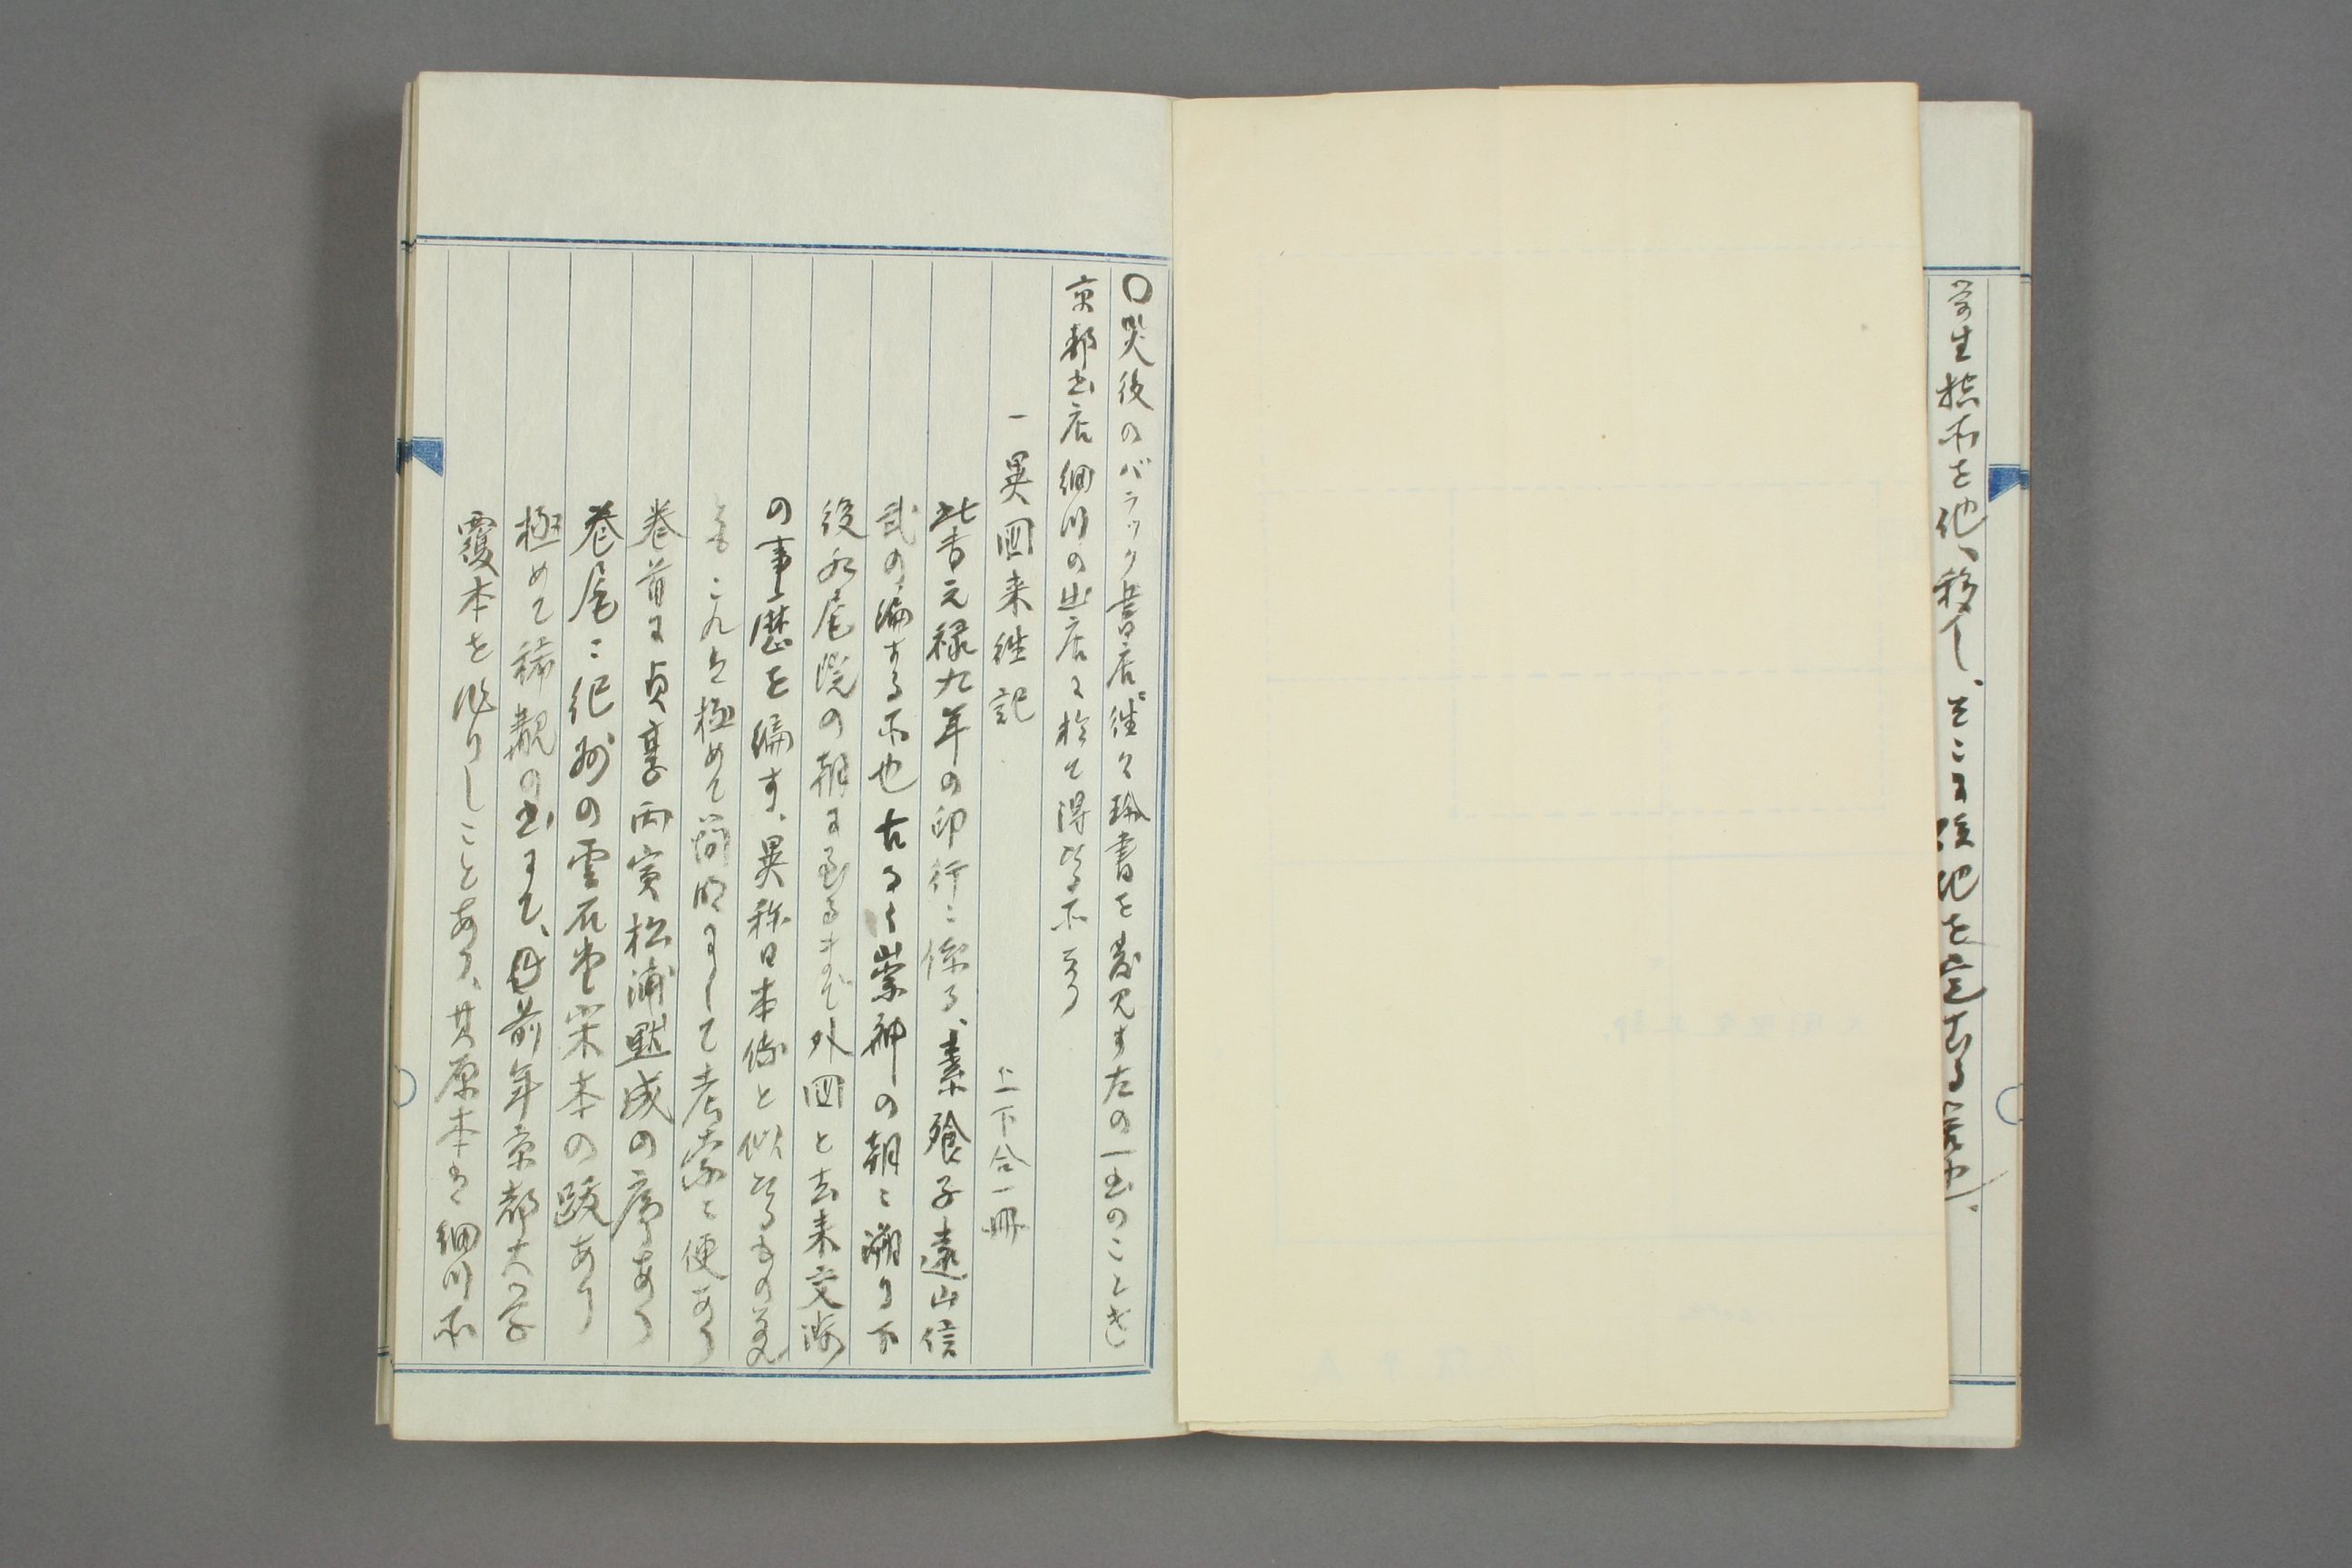 学生控所を他へ移し、そこに
〇災後のバラック書店に往々珍書を発見す左の一書のことき
京都書店細川の出店に於て得たる所なり
一 異国来往記 上下合一冊
此書元禄九年の印行に係る、素飱子遠山信
武の編する所也古くは崇神の朝に溯り下
後水尾院の朝に至るまで外国と去来交渉
の事歴を編す、異称日本伝と似たるもの
これは極めて簡明にして考索に便なり
巻首に貞享丙寅松浦黙成の序あり
巻尾に紀州の雲石堂栄本の跋あり
極めて稀覯の書にて、前年京都大学
覆本を作りしことあり、其原本は細川所